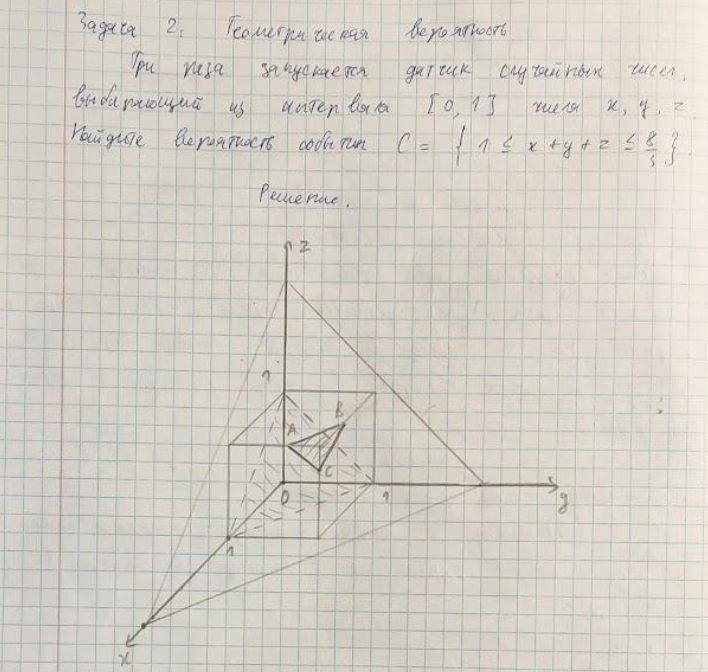 Задача 2. Геометрическая вероятность
Три раза запускается датчик случайных чисел,
выбирающий из интервала [0, 1] числа x, y, z.
Найдите вероятность события C = { 1 ≤ x + y + z ≤ 8/3 }.
Решение.
z
1
A
B
C
0
1
y
1
x